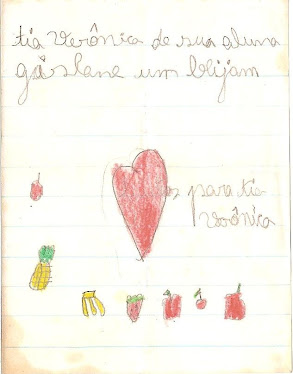 tia verônica de sua aluna
gäslane um blijam
para tia
verônica